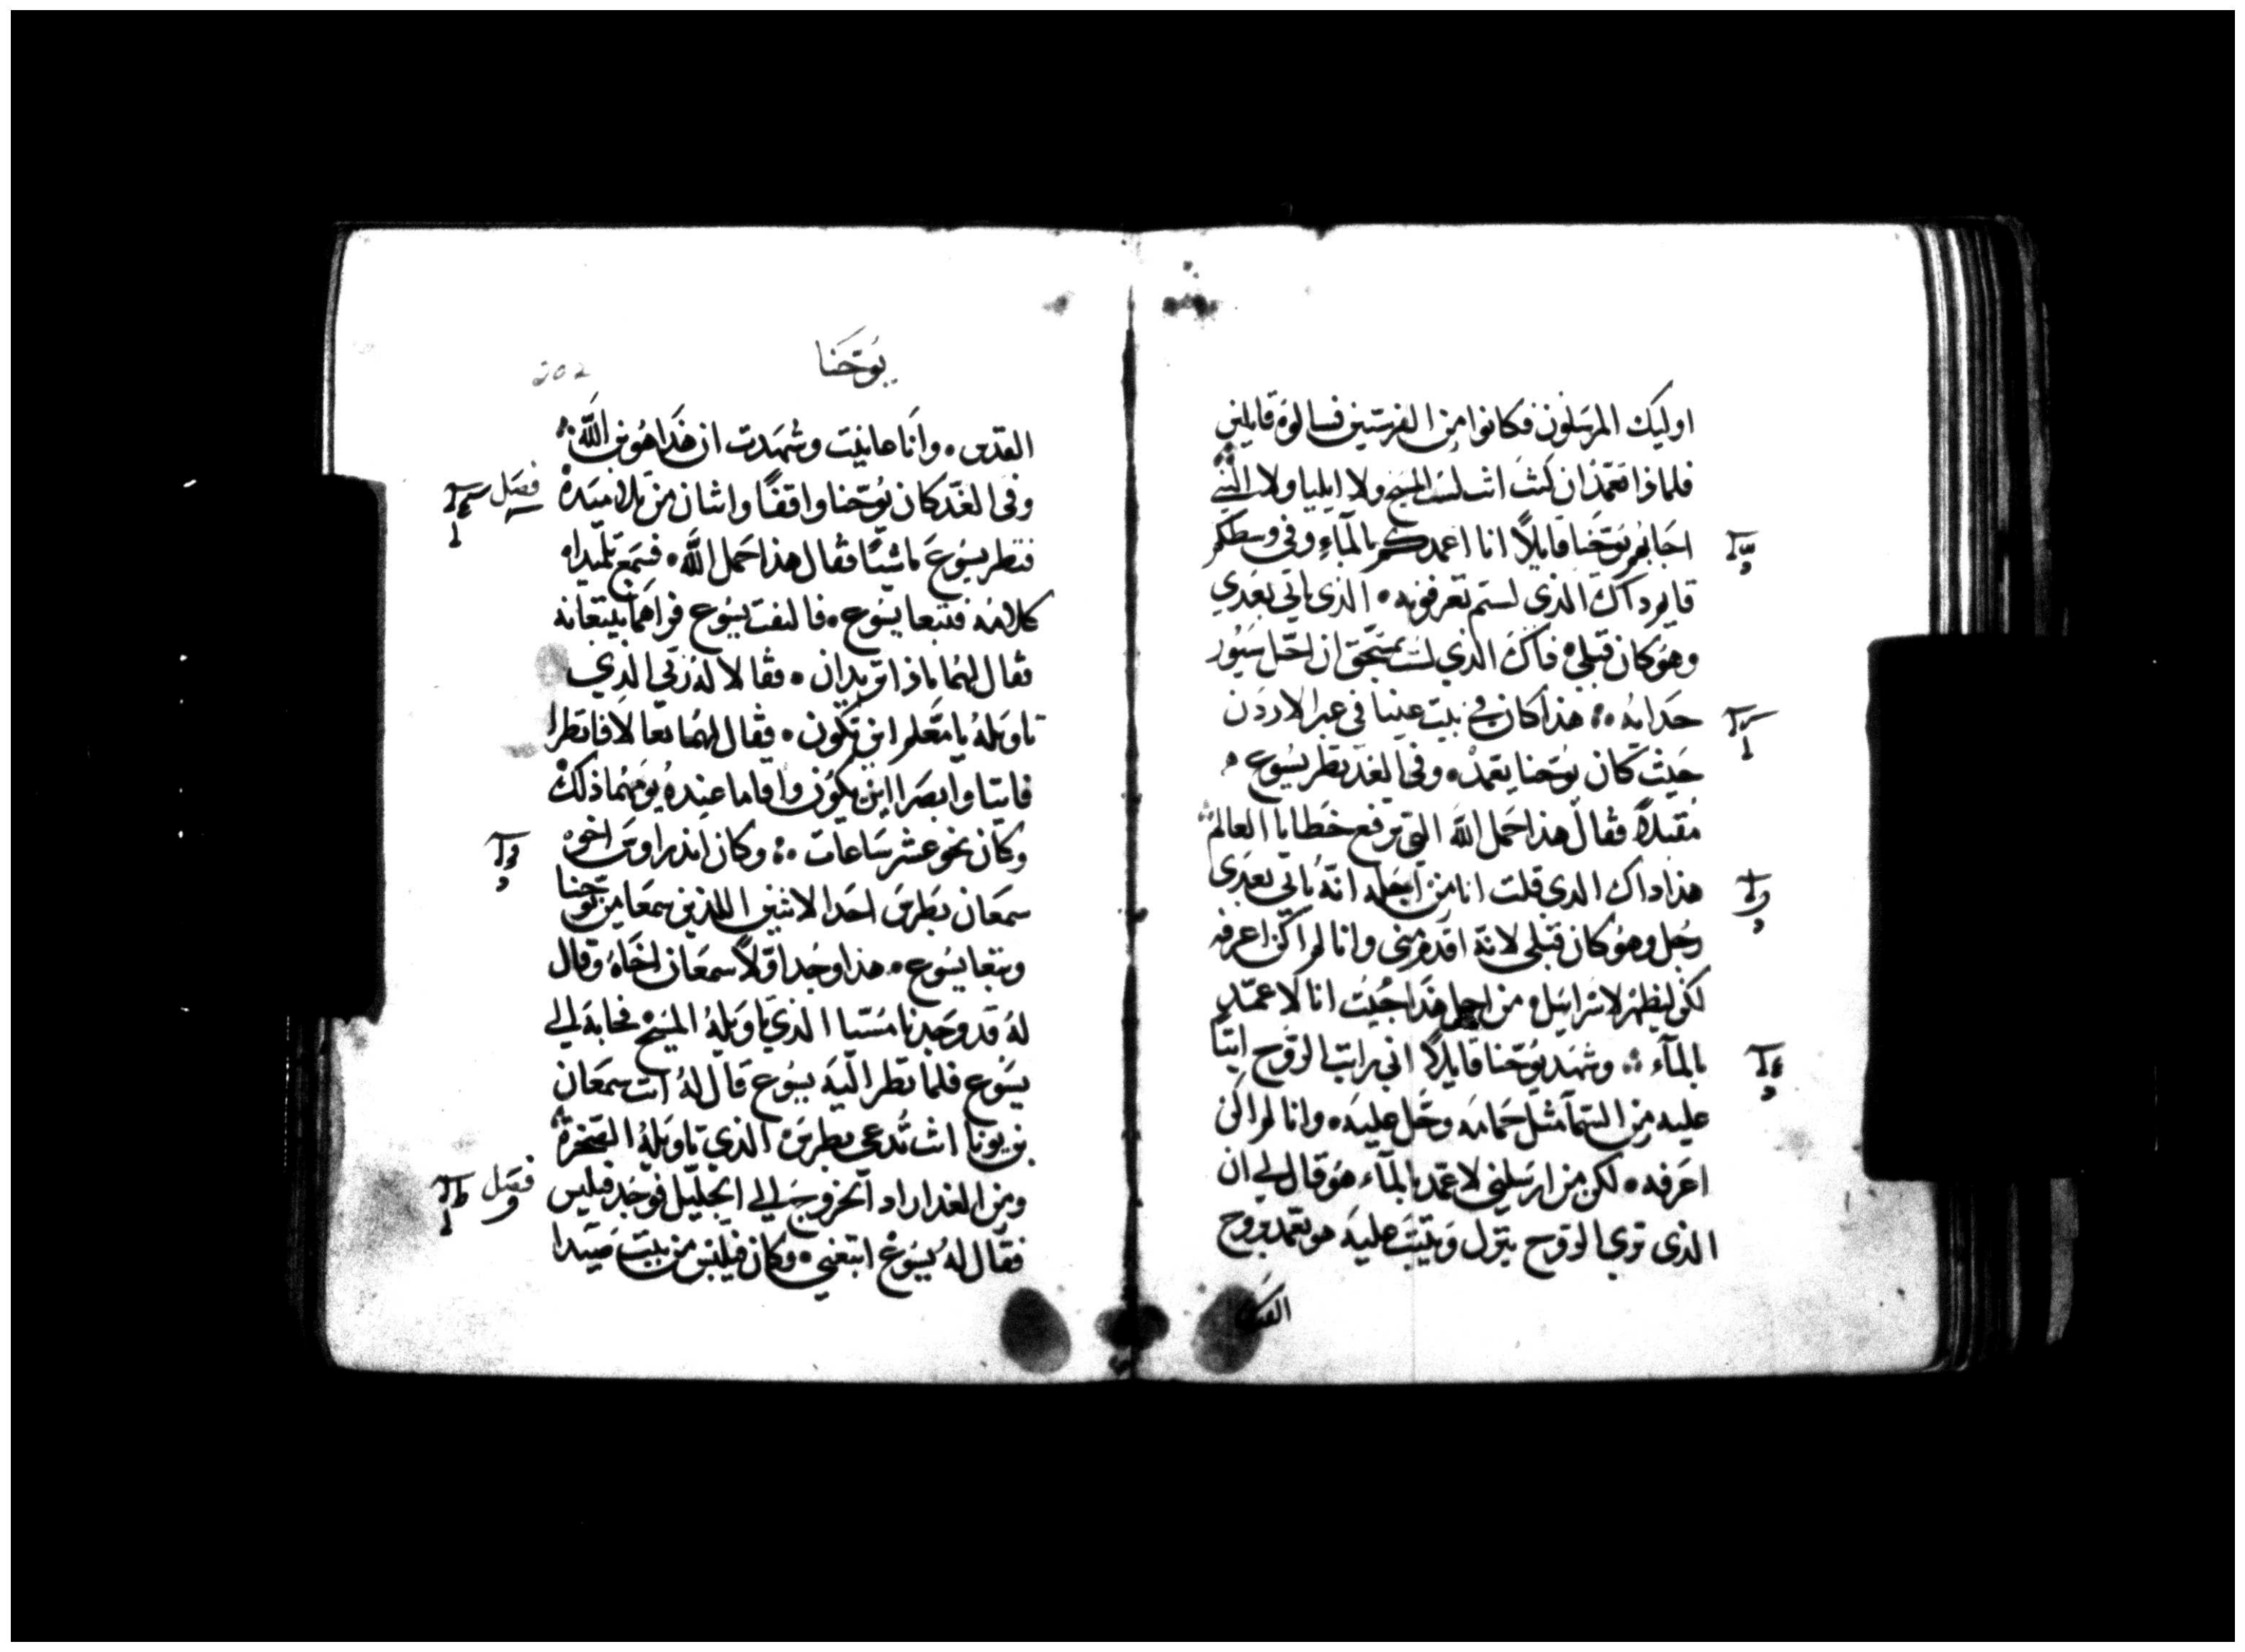 اوليك المرسلون فكانوا من الفرسيين فسالوه قايلين
فلماذا تعمد ان كنت انت لست المسيح ولا ايليا ولا النبي
اجابهم يوحنا قايلاً انا اعمدكم بالمآء وفي وسطكم
قايم داك الذي لستم تعرفونه ۰ الذي ياتي بعدي
وهو كان قبلي ۰ ذاك الذي لست بمستحق ان احل سيور
حدايه ؞ هذا كان في بيت عنيا في عبر الاردن
حيث كان يوحنا يعمد ۰ وفي الغد نظر يسوع
مقبلاً فقال هذا حمل الله التي يرفع خطايا العالم
هذا داك الدي قلت انا من اجله انه ياتي بعدي
رجل وهو كان قبلي لانه اقدم مني وانا لم اكن اعرفه
لكن ليظهر لاسرائيل ۰ من اجل هذا جيت انا لاعمد
بالمآء ؞ وشهد يوحنا قايلاً اني رايت الروح اتيا
عليه من السمآ مثل حمامه وحل عليه ۰ وانا لم اكن
اعرفه ۰ لكن من ارسلني لاعمد بالمآء هو قال لي ان
الذي تري الروح ينزل ويثبت عليه هو يعمد بروح
القدس
يوحنا
202
القدس ۰ وانا عاينت وشهدت ان هذا هو بن الله
وفي الغد كان يوحنا واقفاً واثنان من تلاميذه
فصل
فنظر يسوع ماشياً فقال هذا حمل الله ۰ فسمع تلميذاه
كلامه فتبعا يسوع ۰ فالتفت يسوع فراهما يتبعانه
فقال لهما ماذا تريدان ۰ فقالا له ربي الذي
تاويله يا معلم اين تكون ۰ فقال لهما تعالا فانظرا
فاتيا وابصرا اين يكون واقاما عنده يومهما ذلك
وكان نحو عشر ساعات ؞ وكان اندراوس اخوه
سمعان بطرس احد الاثنين اللذين سمعا من يوحنا
وتبعا يسوع ۰ هذا وجد اولاً سمعان اخاه وقال
له قد وجدنا مسيا الذي تاويله المسيح فجا به الي
يسوع فلما نظر اليه يسوع قال له انت سمعان
بن يونا انت تدعي بطرس الذي تاويله الصخرة
ومن الغد اراد الخروج الي الجليل فوجد فيلبس
فصل
فقال له يسوع اتبعني ۰ وكان فيلبس من بيت صيدا